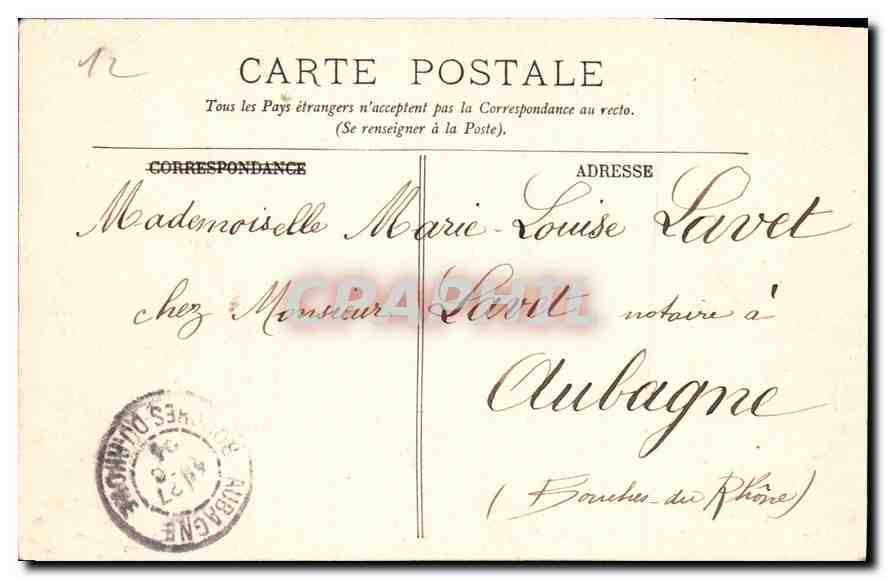 12
CARTE POSTALE
Tous les Pays étrangers n'acceptent pas la Correspondance au recto.
(Se renseigner à la Poste).
CORRESPONDANCE
ADRESSE
Mademoiselle Marie-Louise Lavet
chez Monsieur Lavet notaire à
Aubagne
(Bouches-du Rhône)
CPAPHIL
AUBAGNE
BOUCHES-DU-RHONE
27